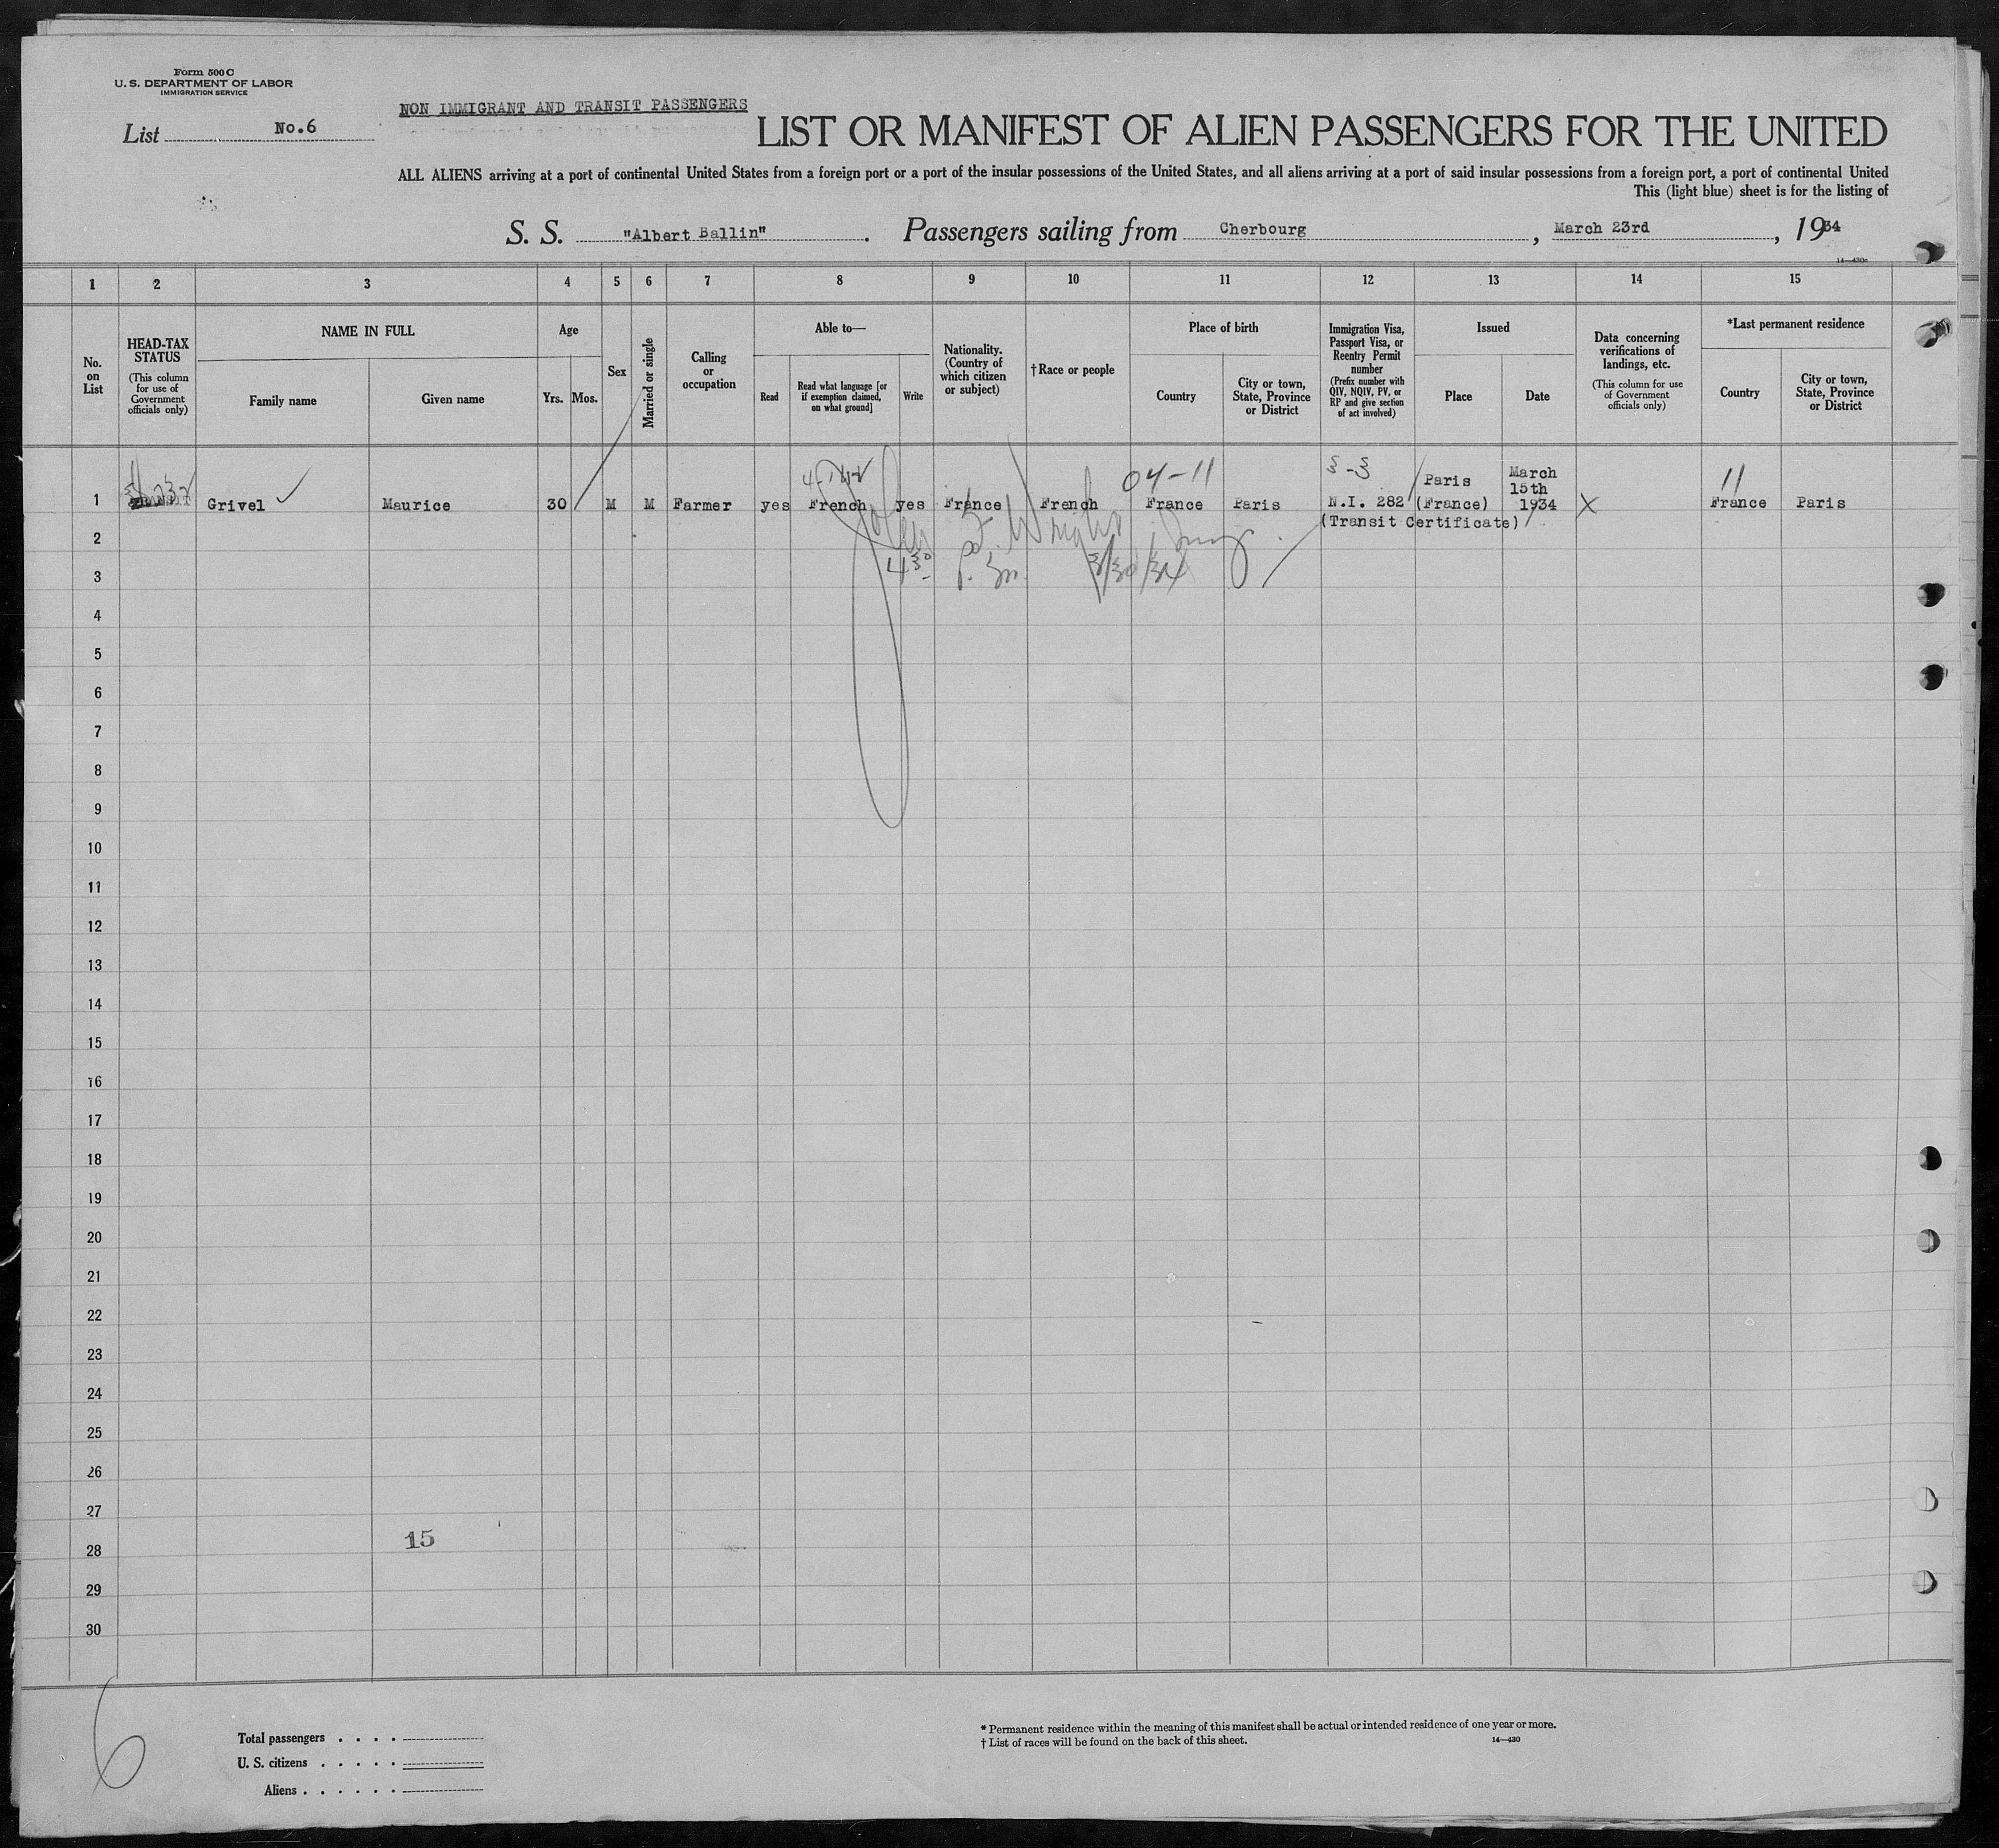 Form 500 C
U. S. DEPARTMENT OF LABOR
IMMIGRATION SERVICE
List No.6
NON IMMIGRANT AND TRANSIT PASSENGERS
LIST OR MANIFEST OF ALIEN PASSENGERS FOR THE UNITED
ALL ALIENS arriving at a port of continental United States from a foreign port or a port of the insular possessions of the United States, and all aliens arriving at a port of said insular possessions from a foreign port, a port of continental United
This (light blue) sheet is for the listing of
S. S. "Albert Ballin". Passengers sailing from Cherbourg, March 23rd, 1934
14—430c
1 2 3 4 5 6 7 8 9 10 11 12 13 14 15
No. on List
HEAD-TAX STATUS
(This column for use of Government officials only)
NAME IN FULL
Family name
Given name
Age
Yrs. Mos.
Sex
Married or single
Calling or occupation
Able to—
Read
Read what language [or if exemption claimed, on what ground]
Write
Nationality. (Country of which citizen or subject)
†Race or people
Place of birth
Country
City or town, State, Province or District
Immigration Visa, Passport Visa, or Reentry Permit number
(Prefix number with QIV, NQIV, PV, or RP and give section of act involved)
Issued
Place
Date
Data concerning verifications of landings, etc.
(This column for use of Government officials only)
*Last permanent residence
Country
City or town, State, Province or District
04-11
3-3
11
1 TRANSIT Grivel Maurice 30 M M Farmer yes French yes France French France Paris N.I. 282 Paris (France) March 15th 1934 X France Paris
(Transit Certificate)
2
4 30 p.m. 3/30/34
3
4
5
6
7
8
9
10
11
12
13
14
15
16
17
18
19
20
21
22
23
24
25
26
27
15
28
29
30
6
Total passengers . . . .
U. S. citizens . . . . .
Aliens . . . . . .
* Permanent residence within the meaning of this manifest shall be actual or intended residence of one year or more.
† List of races will be found on the back of this sheet.
14—430